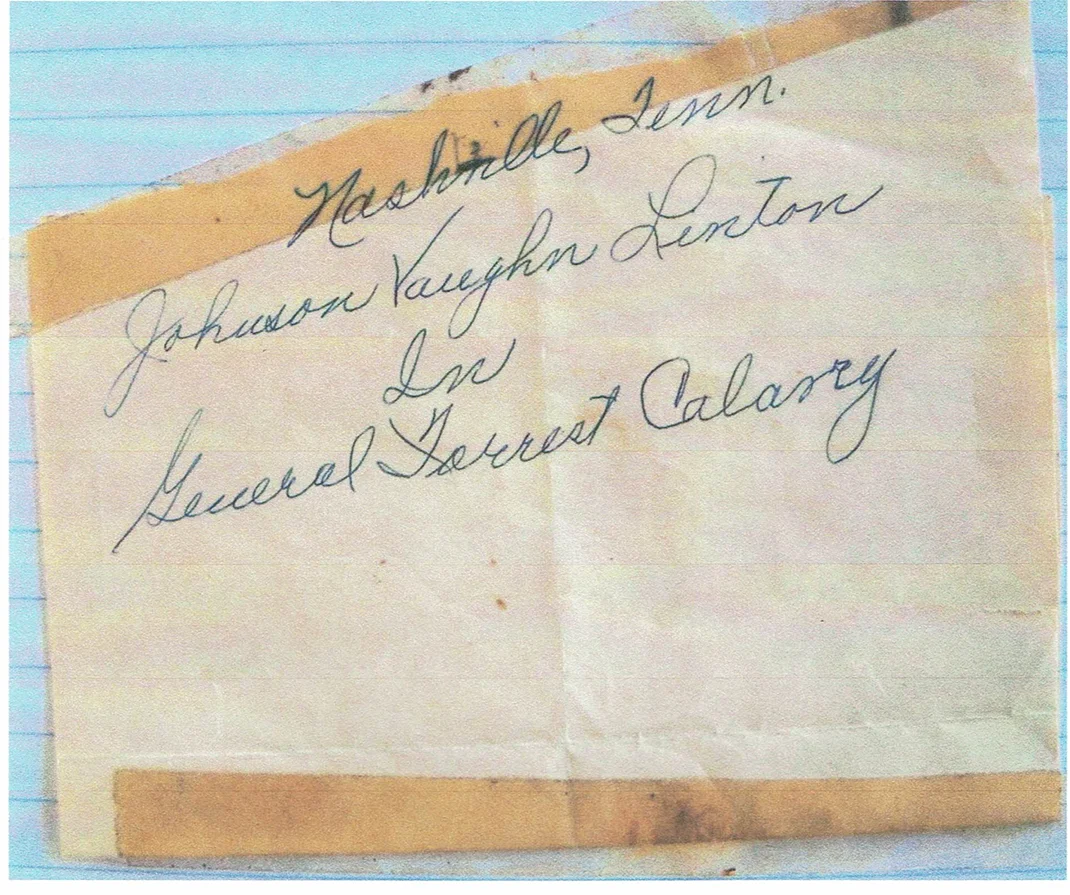 Nashville, Tenn.
Johnson Vaughn Linton
In
General Forrest Calavry